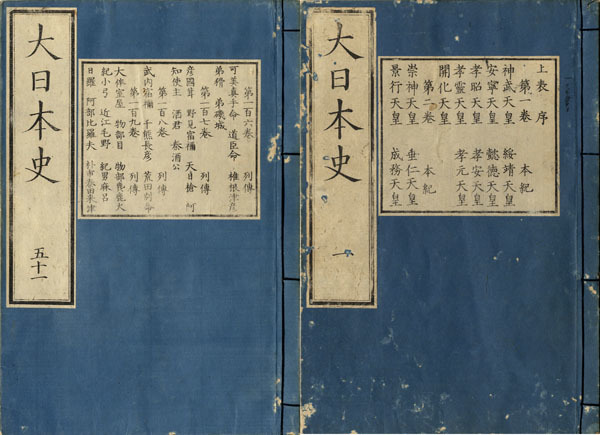 上表 序
第一卷 本紀
神武天皇 綏靖天皇
安寧天皇 懿德天皇
孝昭天皇 孝安天皇
孝靈天皇 孝元天皇
開化天皇
第二卷 本紀
崇神天皇 垂仁天皇
景行天皇 成務天皇
大日本史 一
第一百六卷 列傳
可美眞手命 道臣命 椎根津彦
弟猾 弟磯城
第一百七卷 列傳
彦國葺 野見宿禰 天日槍 阿
知使主 酒君 秦酒公
第一百八卷 列傳
武内宿禰 千熊長彦 荒田別命
第一百九卷 列傳
大伴室屋 物部目 物部麁鹿火
紀小弓 近江毛野 紀男麻呂
日羅 阿部比羅夫 朴市秦田來津
大日本史 五十一